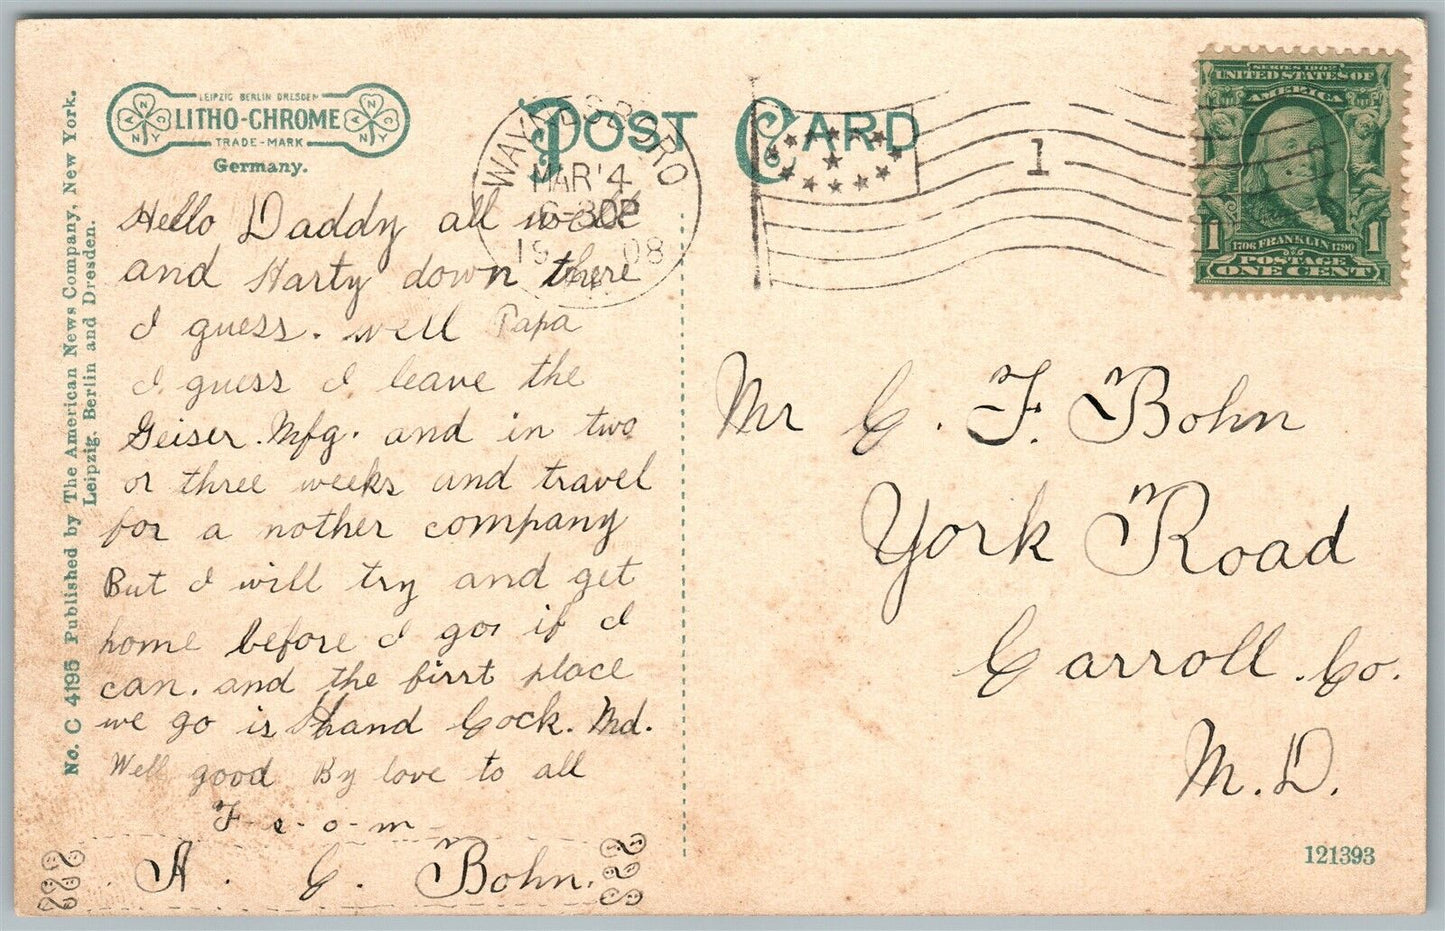 No. C 4195 Published by The American News Company, New York.
Leipzig, Berlin and Dresden.
LEIPZIG BERLIN DRESDEN
LITHO-CHROME
TRADE-MARK
Germany.
POST CARD
WAYNESBORO
MAR 4
6-30P
1908
1
SERIES 1902
UNITED STATES OF
AMERICA
1706 FRANKLIN 1790
1 1
POSTAGE
ONE CENT
Hello Daddy all well
and Harty down there
I guess. well Papa
I guess I leave the
Geiser Mfg. and in two
or three weeks and travel
for a nother company
But I will try and get
home before I go if I
can. and the first place
we go is Hand Cock. Md.
Well good By love to all
F-r-o-m-
A. C. Bohn.
Mr C. F. Bohn
York Road
Carroll. Co.
M.D.
121393